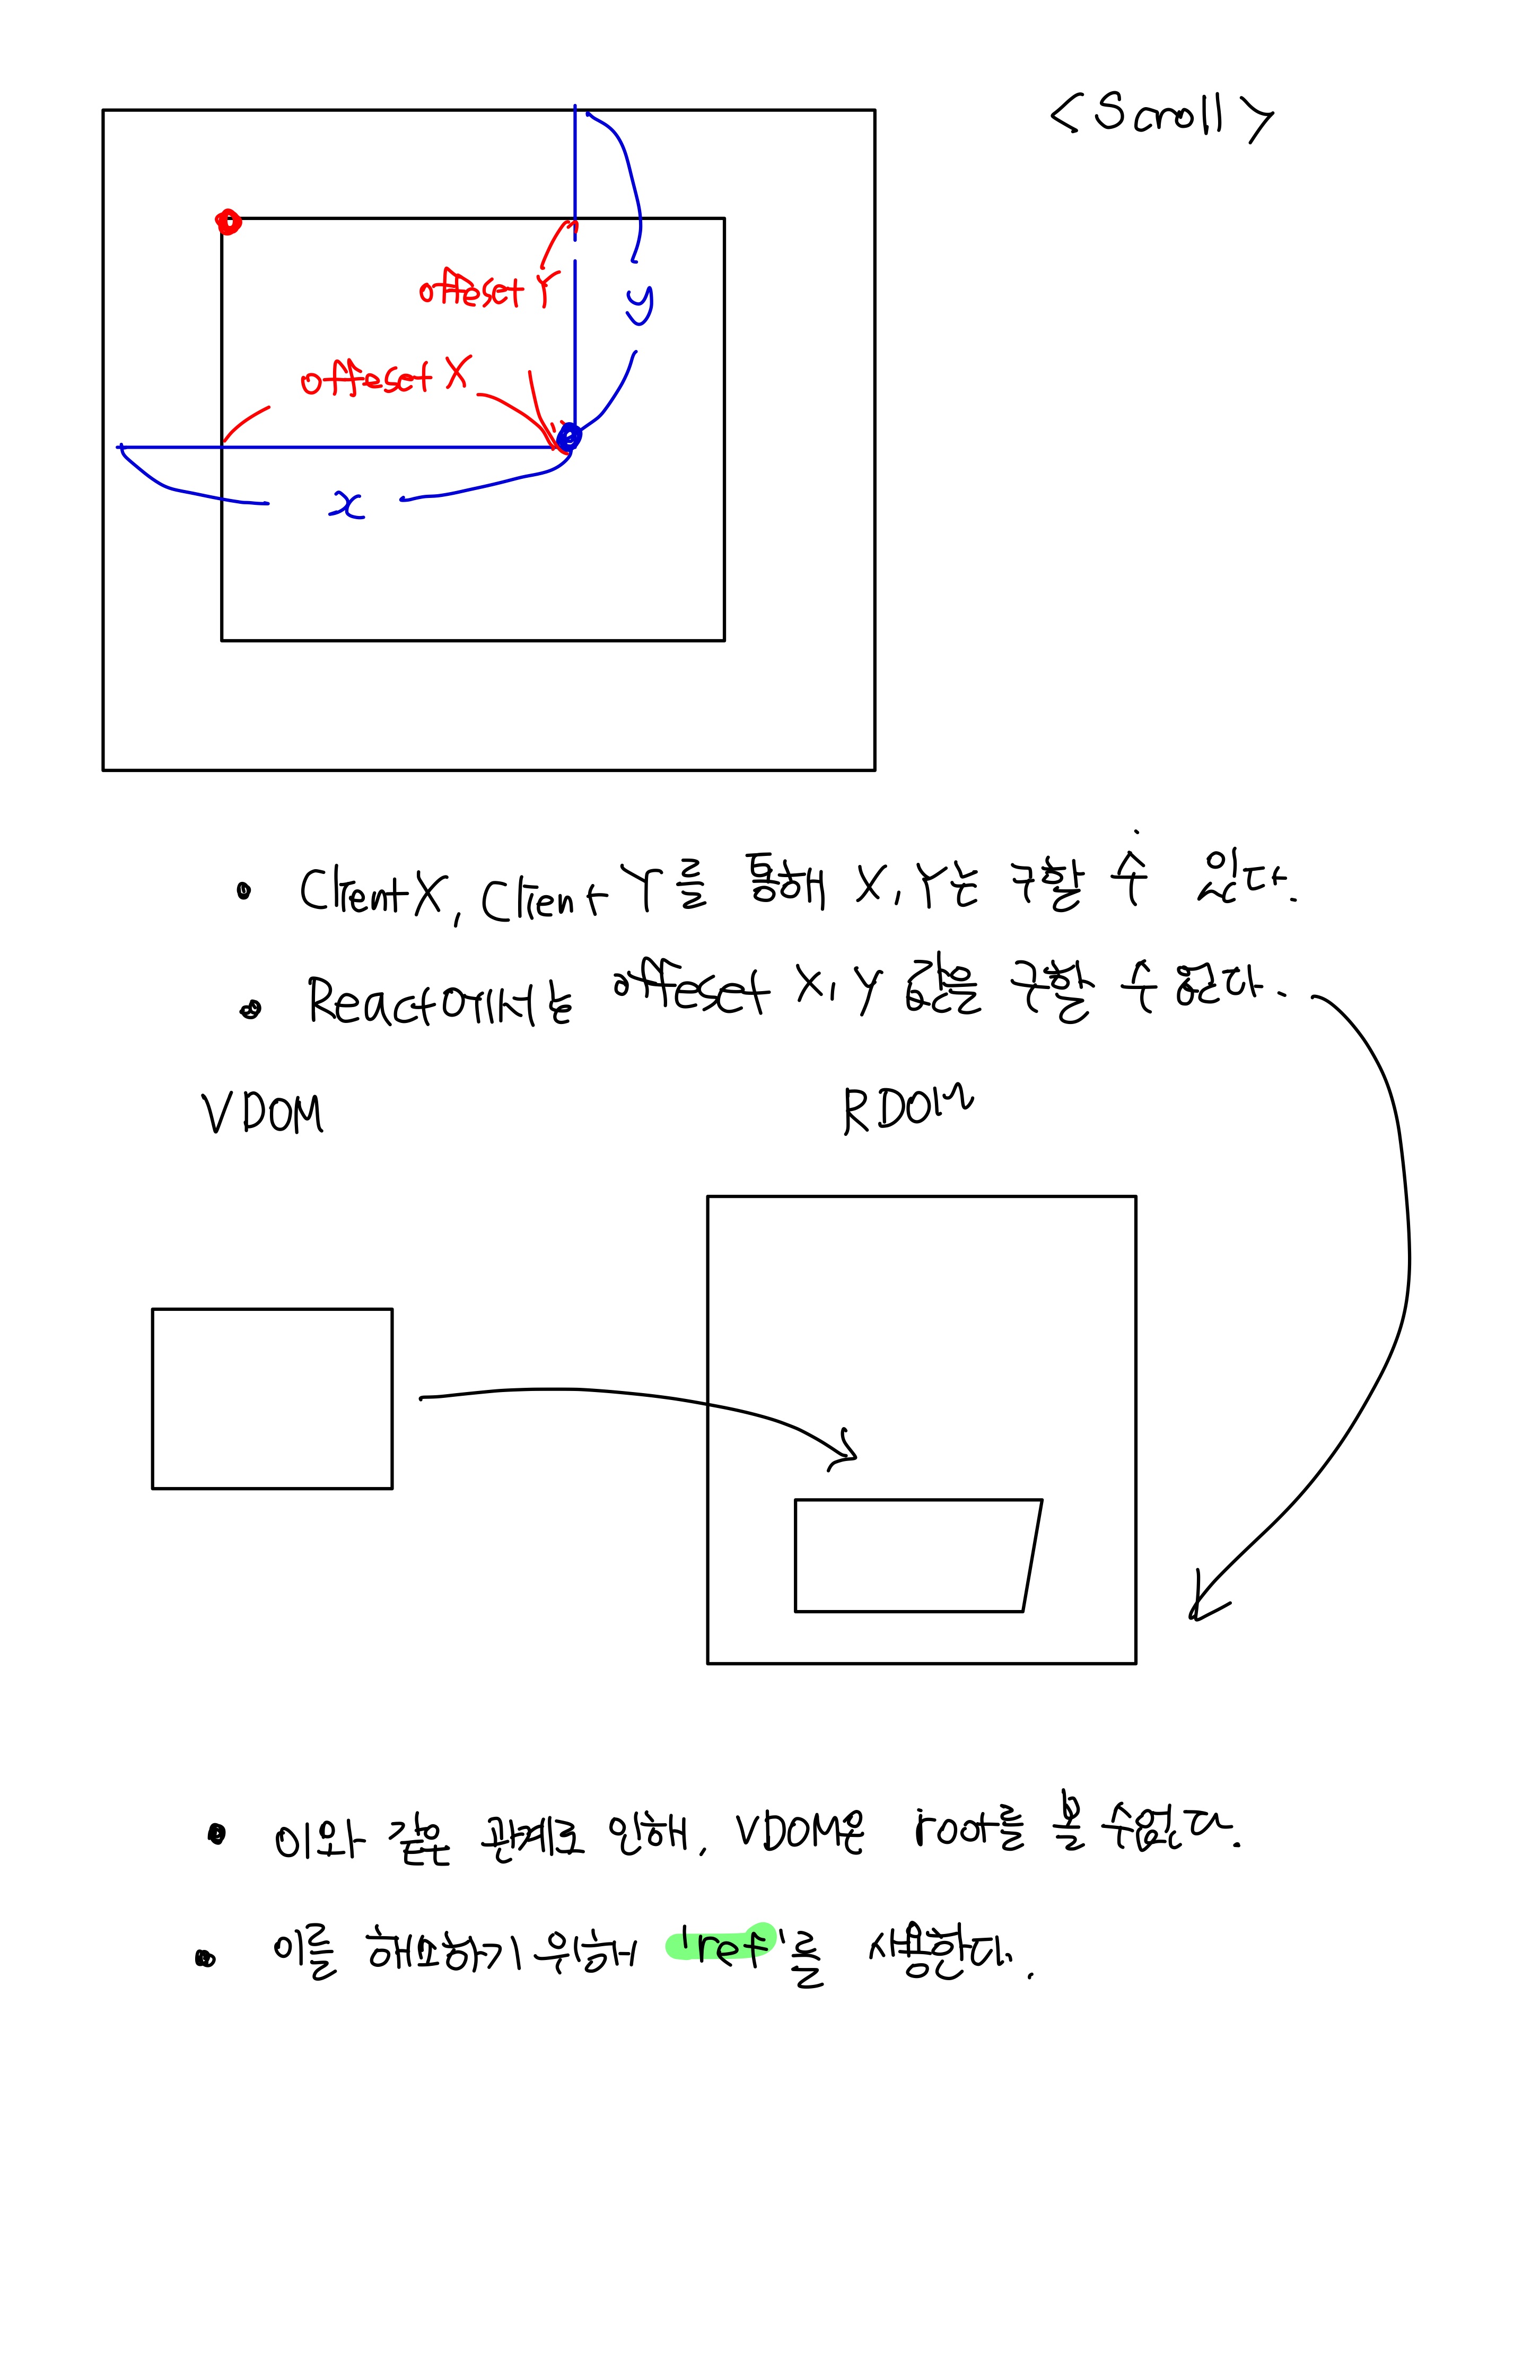 <Scroll>
offset Y
y
offset X
x
Client X, Client Y를 통해 X, Y는 구할 수 있다.
React에서는 offset X, Y 값은 구할 수 없다.
VDOM
RDOM
이와 같은 관계로 인해, VDOM은 i 어를 볼 수 없다.
이를 해결하기 위해서 'ref'를 사용한다.